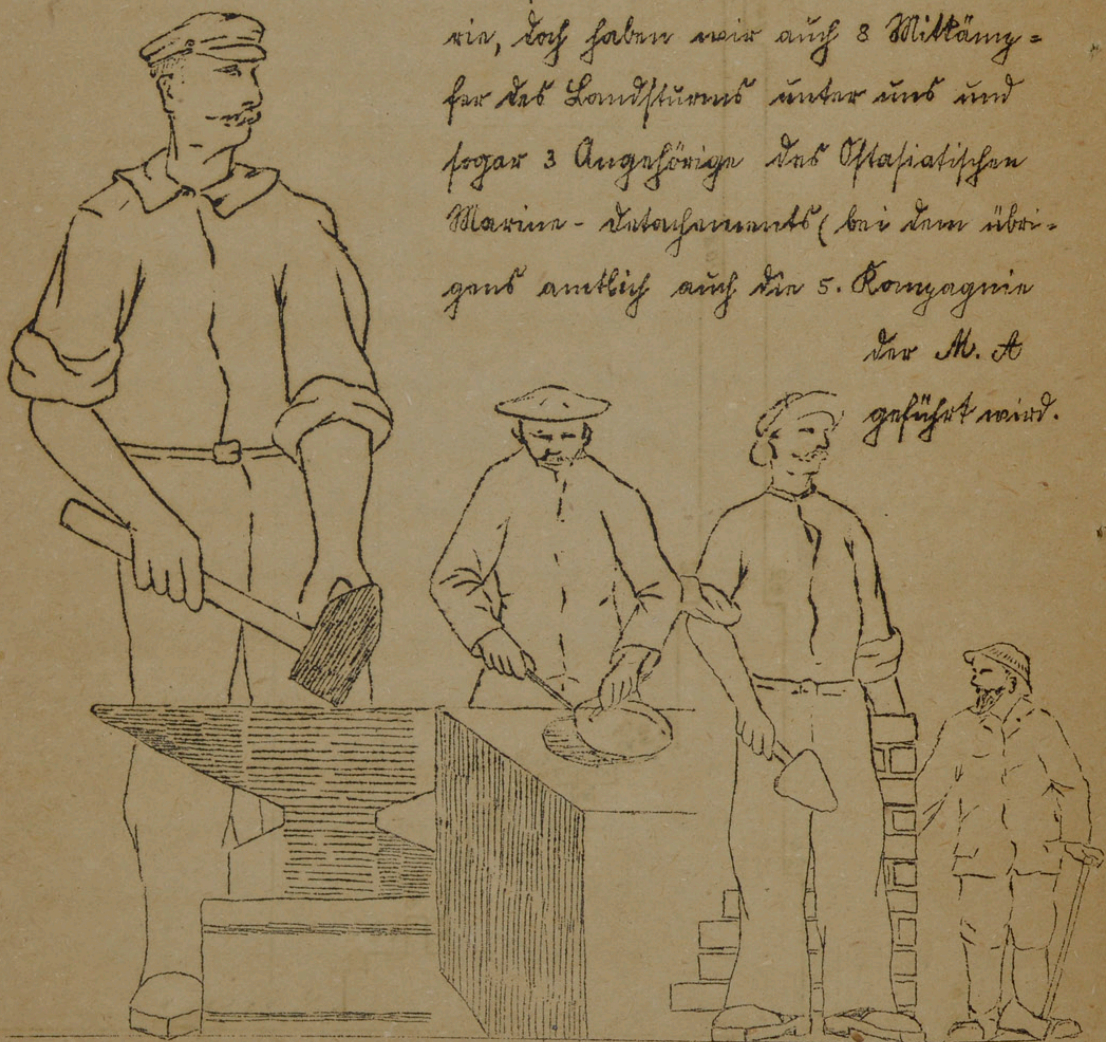 rie, doch haben wir auch 8 Mitkämp=
fer des Landsturms unter uns und
sogar 3 Angehörige des Ostasiatischen
Marine-Detachements (bei dem übri-
gens amtlich auch die 5. Kompagnie
der M. A
geführt wird.